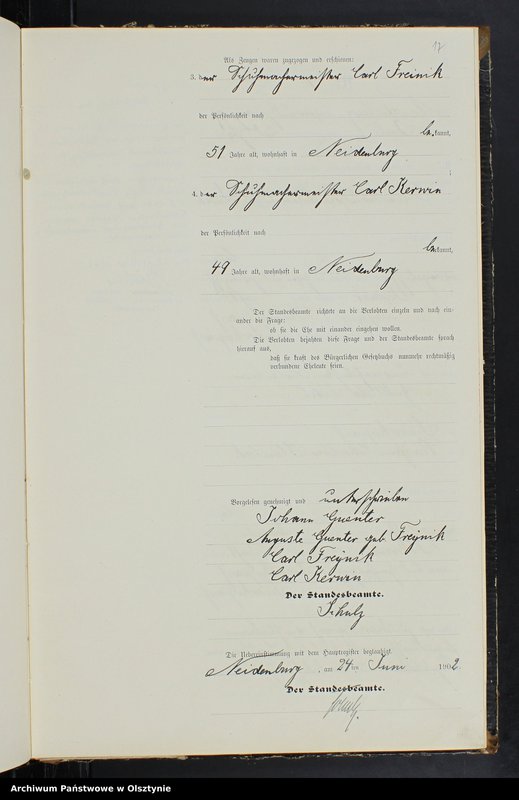 17
Als Zeugen waren zugezogen und erschienen:
3. der Schuhmachermeister Carl Freinik
der Persönlichkeit nach
bekannt,
51 Jahre alt, wohnhaft in Neidenburg
4. der Schuhmachermeister Carl Kerwin
der Persönlichkeit nach
bekannt,
49 Jahre alt, wohnhaft in Neidenburg
Der Standesbeamte richtete an die Verlobten einzeln und nach ein-
ander die Frage:
ob sie die Ehe mit einander eingehen wollen.
Die Verlobten bejahten diese Frage und der Standesbeamte sprach
hierauf aus,
daß sie kraft des Bürgerlichen Gesetzbuchs nunmehr rechtmäßig
verbundene Eheleute seien.
Vorgelesen genehmigt und unterschrieben
Johann Guenter
Auguste Guenter geb Freynik
Carl Freynik
Carl Kerwin
Der Standesbeamte.
Schulz
Die Uebereinstimmung mit dem Hauptregister beglaubigt.
Neidenburg, am 24 ten Juni 1902.
Der Standesbeamte.
Schulz.
Archiwum Państwowe w Olsztynie